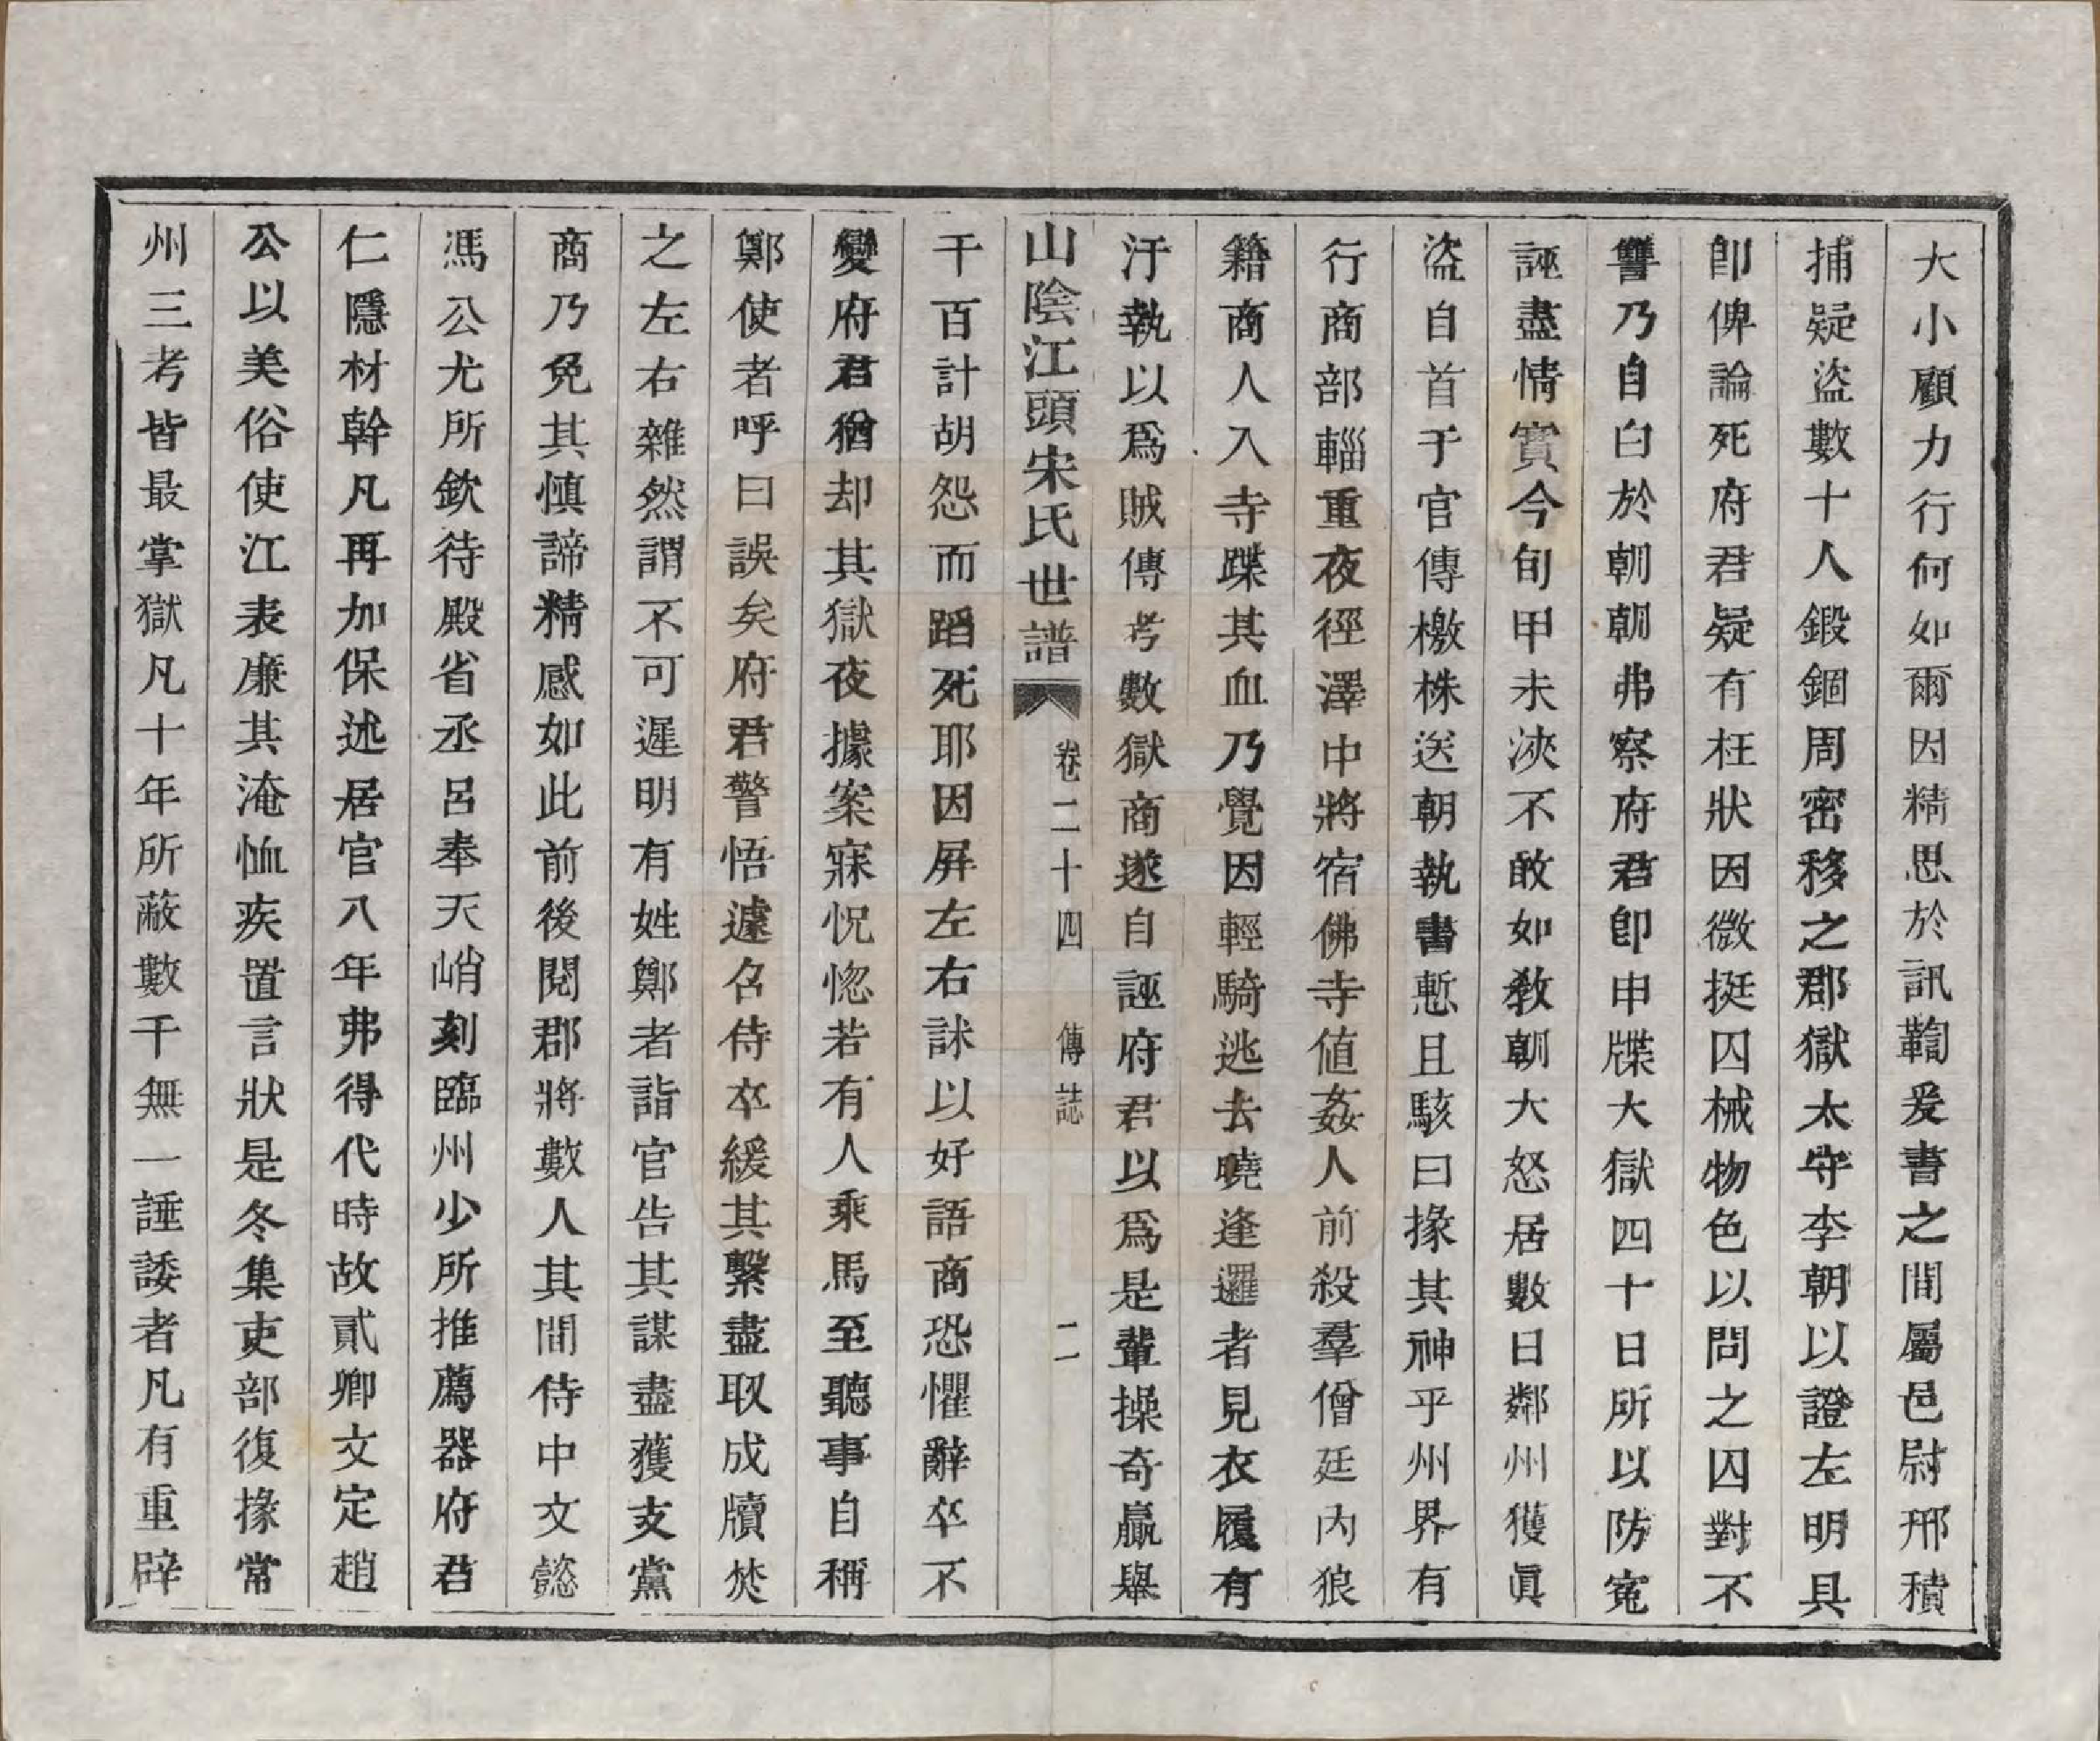 大小顧力行何如爾因精思於訊鞫爰書之間屬邑尉邢積
捕疑盜數十人鍛錮周密移之郡獄太守李朝以證左明具
卽俾論死府君疑有枉狀因微挺囚械物色以問之囚對不
讐乃自白於朝朝弗察府君卽申牒大獄四十日所以防寃
誣盡情實今旬甲未浹不敢如敎朝大怒居數日鄰州獲眞
盜自首于官傳檄株送朝執書慙且駭曰掾其神乎州界有
行商部輜重夜徑澤中將宿佛寺値姦人前殺羣僧廷內狼
籍商人入寺蹀其血乃覺因輕騎逃去曉逢邏者見衣履有
汙執以爲賊傳考數獄商遂自誣府君以爲是輩操奇贏舉
山陰江頭宋氏世譜 卷二十四 傳誌 二
千百計胡怨而蹈死耶因屏左右訹以好語商恐懼辭卒不
變府君猶却其獄夜據案寐怳惚若有人乘馬至聽事自稱
鄭使者呼曰誤矣府君警悟遽名侍卒緩其繫盡取成牘焚
之左右雜然謂不可遲明有姓鄭者詣官告其謀盡獲支黨
商乃免其愼諦精感如此前後閱郡將數人其間侍中文懿
馮公尤所欽待殿省丞呂奉天峭刻臨州少所推薦器府君
仁隱材幹凡再加保述居官八年弗得代時故貳卿文定趙
公以美俗使江表廉其淹恤疾置言狀是冬集吏部復掾常
州三考皆最掌獄凡十年所蔽數千無一誶諉者凡有重辟